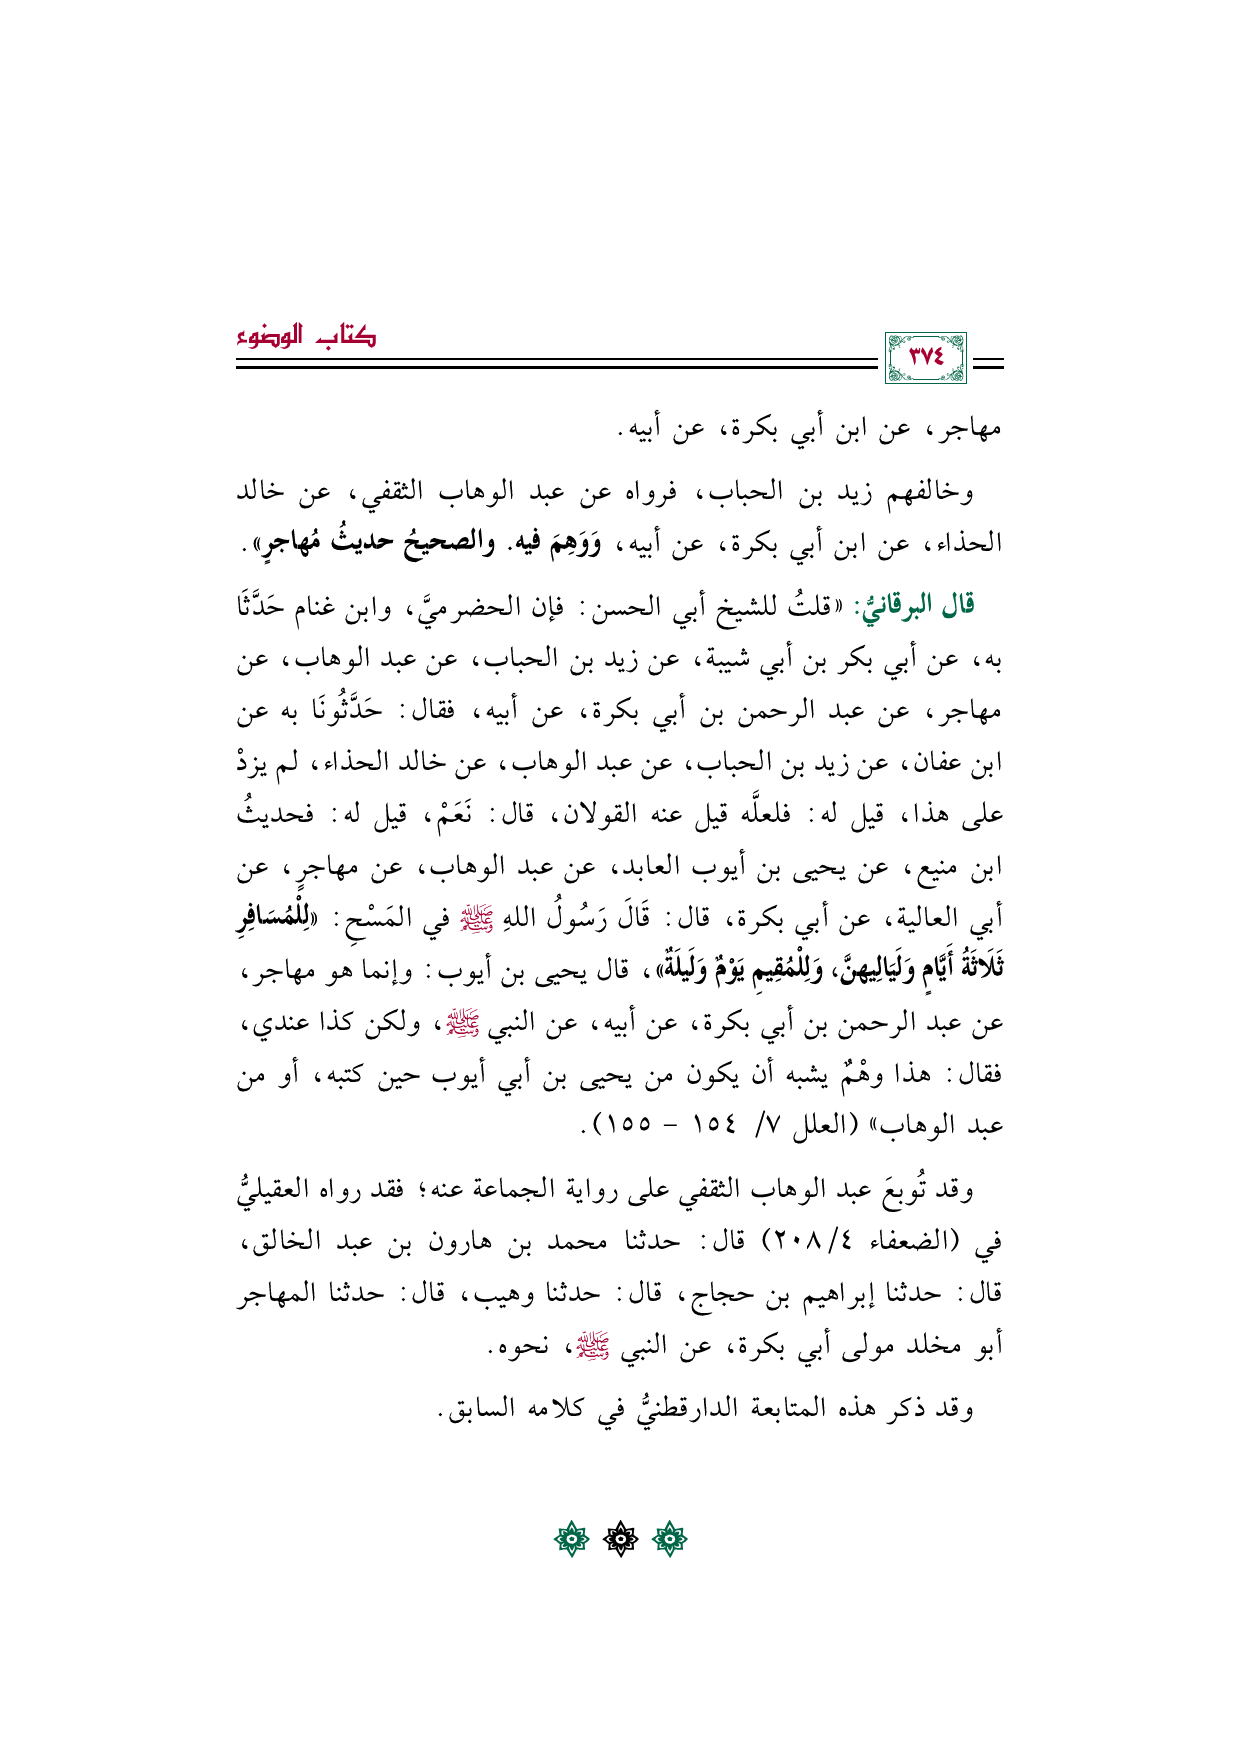 كتاب الوضوء
٣٧٤
مهاجر، عن ابن أبي بكرة، عن أبيه.
وخالفهم زيد بن الحباب، فرواه عن عبد الوهاب الثقفي، عن خالد
الحذاء، عن ابن أبي بكرة، عن أبيه، وَوَهِمَ فيه. والصحيحُ حديثُ مُهاجرٍ».
قال البرقانيُّ: «قلتُ للشيخ أبي الحسن: فإن الحضرميَّ، وابن غنام حَدَّثَا
به، عن أبي بكر بن أبي شيبة، عن زيد بن الحباب، عن عبد الوهاب، عن
مهاجر، عن عبد الرحمن بن أبي بكرة، عن أبيه، فقال: حَدَّثُونَا به عن
ابن عفان، عن زيد بن الحباب، عن عبد الوهاب، عن خالد الحذاء، لم يزدْ
على هذا، قيل له: فلعلَّه قيل عنه القولان، قال: نَعَمْ، قيل له: فحديثُ
ابن منيع، عن يحيى بن أيوب العابد، عن عبد الوهاب، عن مهاجرٍ، عن
أبي العالية، عن أبي بكرة، قال: قَالَ رَسُولُ اللهِ ﷺ في المَسْحِ: «لِلْمُسَافِرِ
ثَلَاثَةُ أَيَّامٍ وَلَيَالِيهنَّ، وَلِلْمُقِيمِ يَوْمٌ وَلَيلَةٌ»، قال يحيى بن أيوب: وإنما هو مهاجر،
عن عبد الرحمن بن أبي بكرة، عن أبيه، عن النبي ﷺ، ولكن كذا عندي،
فقال: هذا وهْمٌ يشبه أن يكون من يحيى بن أبي أيوب حين كتبه، أو من
عبد الوهاب» (العلل ٧/ ١٥٤ – ١٥٥).
وقد تُوبعَ عبد الوهاب الثقفي على رواية الجماعة عنه؛ فقد رواه العقيليُّ
في (الضعفاء ٢٠٨/٤) قال: حدثنا محمد بن هارون بن عبد الخالق،
قال: حدثنا إبراهيم بن حجاج، قال: حدثنا وهيب، قال: حدثنا المهاجر
أبو مخلد مولى أبي بكرة، عن النبي ﷺ، نحوه.
وقد ذكر هذه المتابعة الدارقطنيُّ في كلامه السابق.